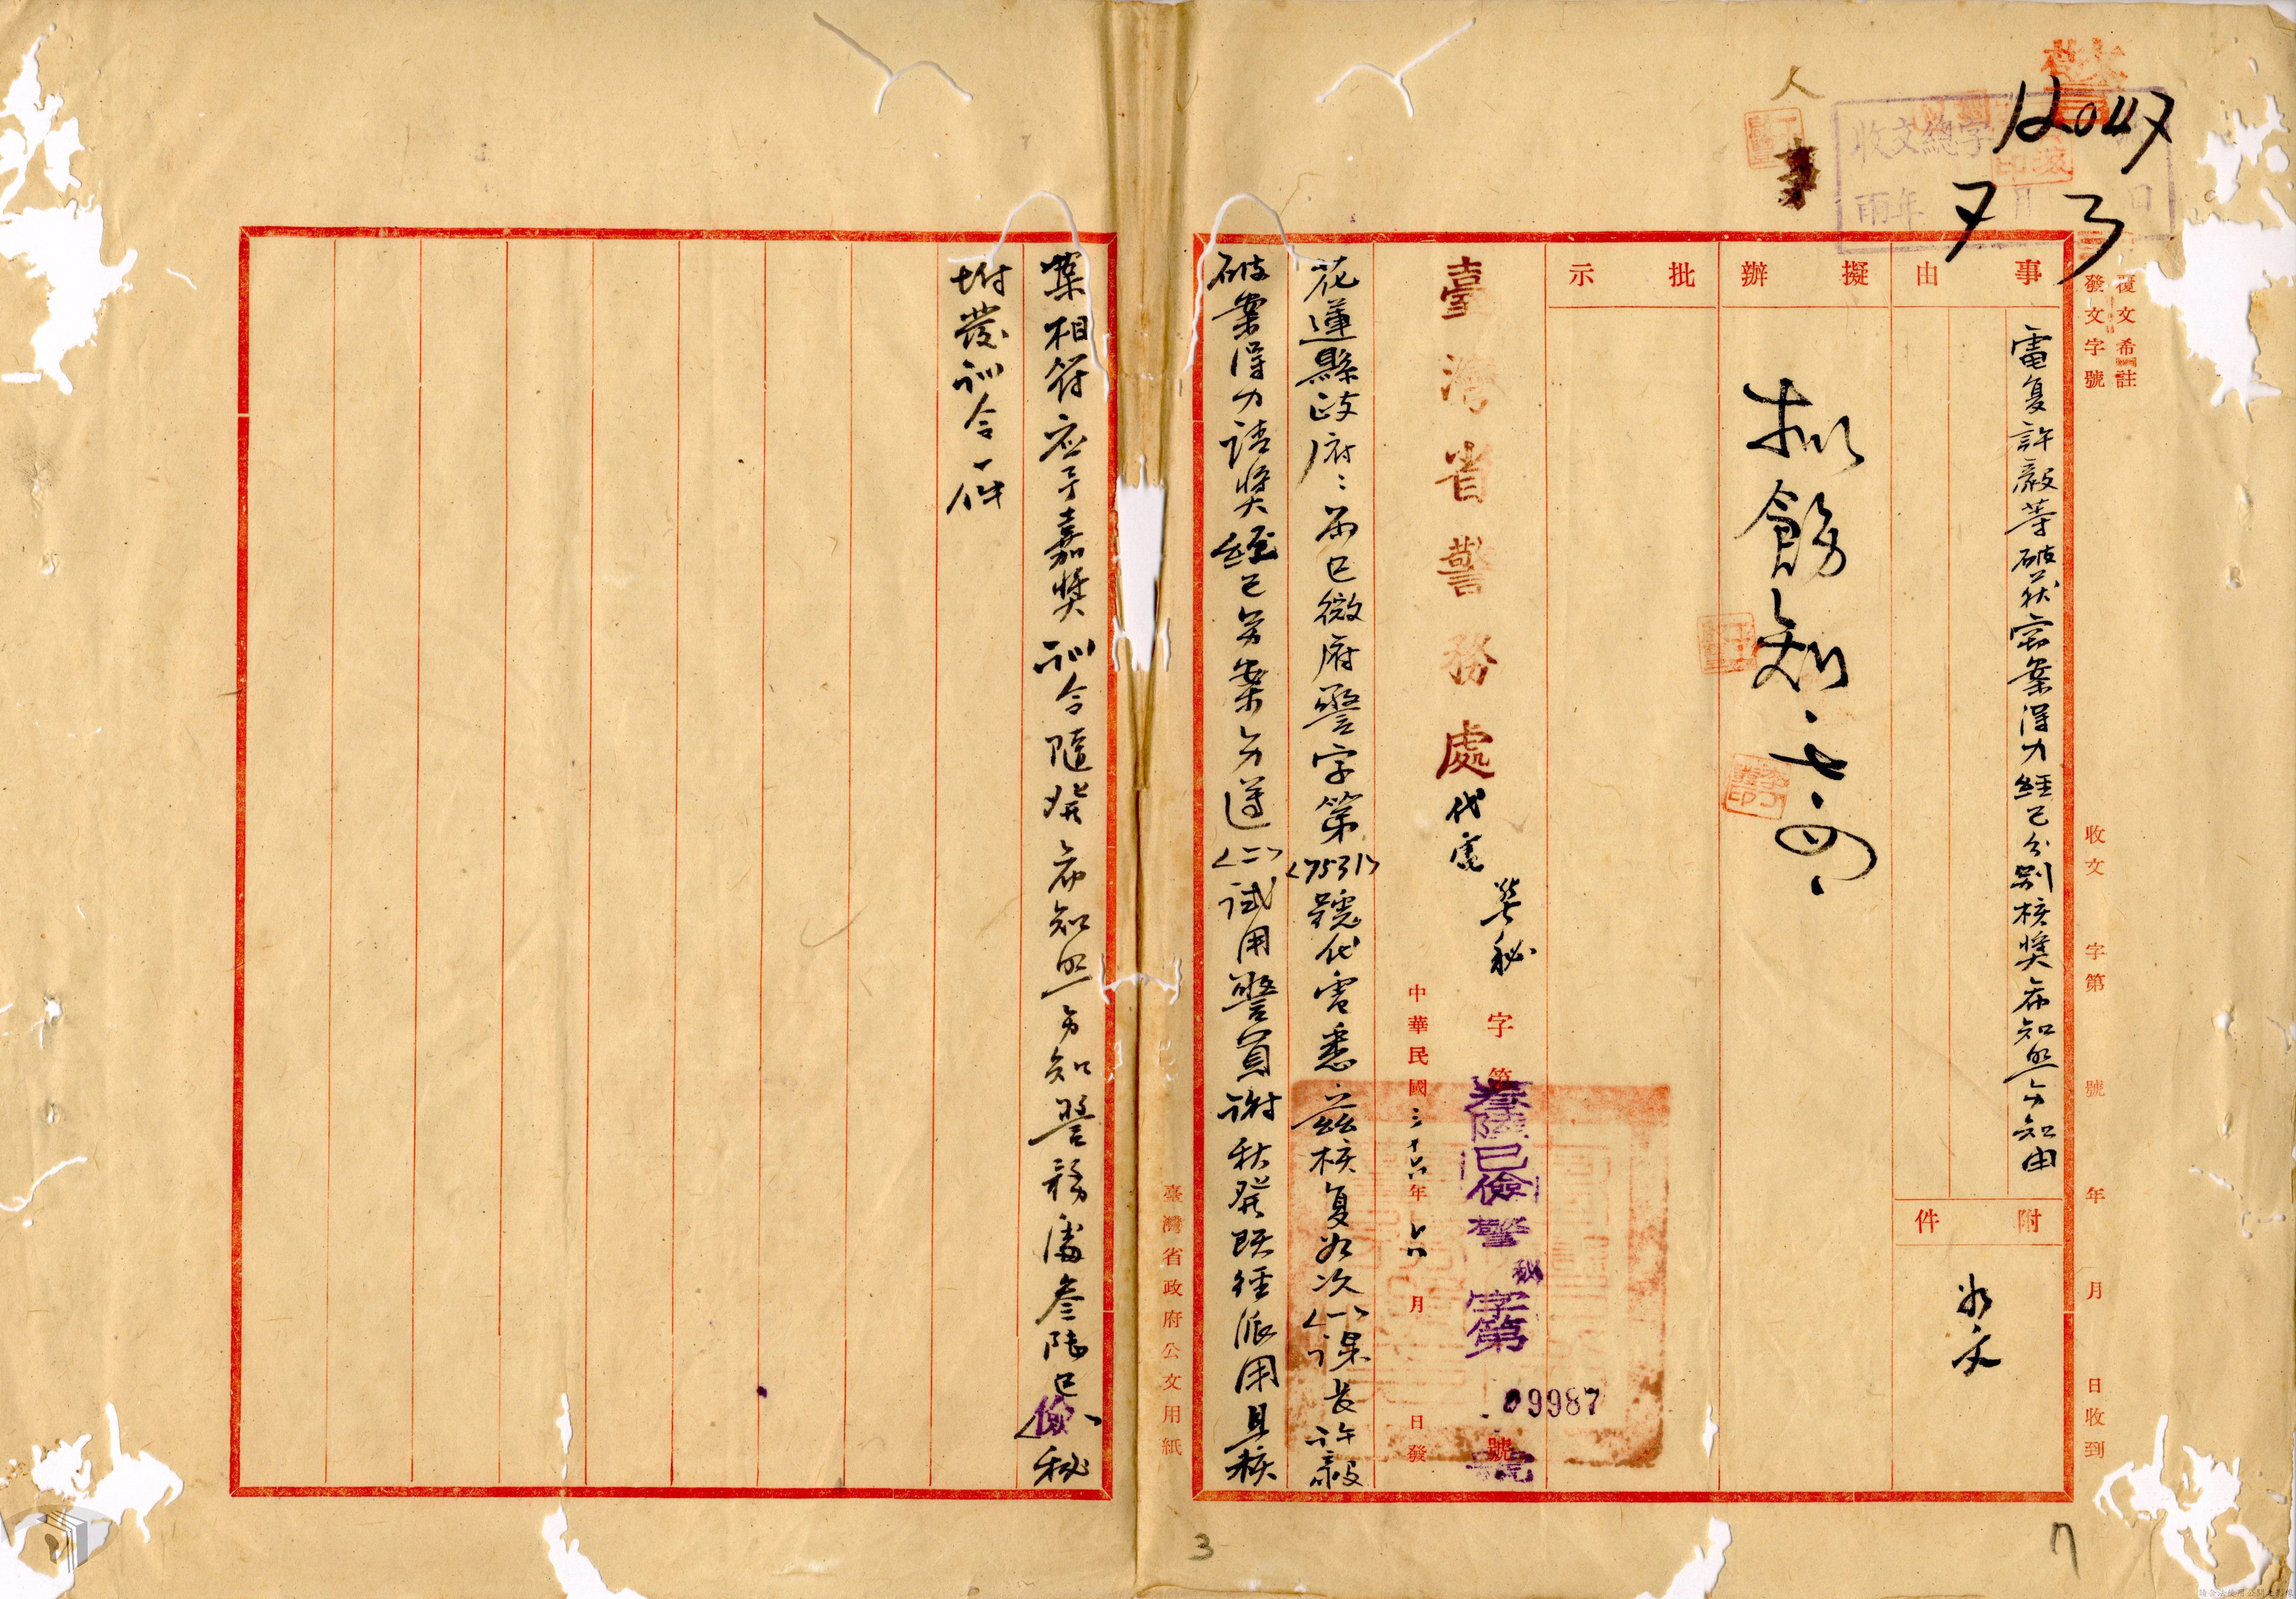 12047
收文總字
年 7 月 3 日
人
覆文希註
發文字號
收文 字第 號 年 月 日收到
事由
電复許毅等破获竊案得力經已分別核獎希知照分知由
附件
如文
擬辦
擬飭知、七、四、
批示
臺灣省警務處代電
警秘字第 號
叁陸巳儉警秘字第09987號
中華民國三十六年六月 日發
花蓮縣政府:為巳微府警字第<7531>號代電悉茲核复如次<一>課長許毅
破案得力請獎經已另案分遵<二>試用警員謝秋發既徑派用且核
臺灣省政府公文用紙
業相符应予嘉獎訓令隨發希知照分知警務處叁陸巳儉秘
坿發訓令一件
3
7